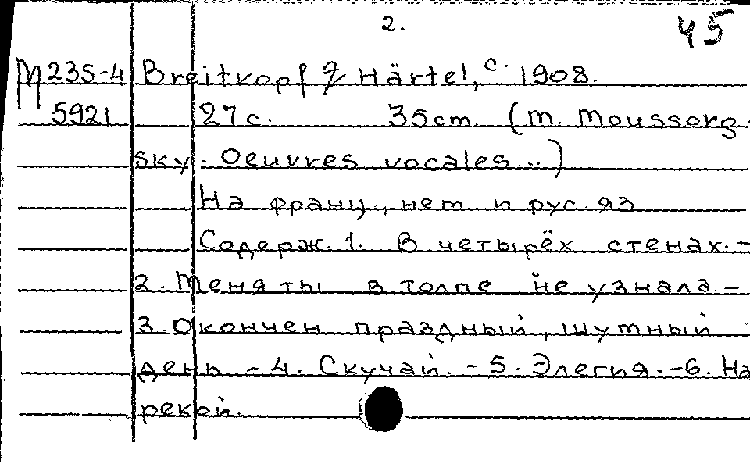 2. 45
М235-4 Breitkopf & Härtel, c. 1908.
5921 27 с. 35cm. (M. Moussorg-
sky. Oeuvres vocales..)
На франц., нем и рус яз
Содерж. 1. В четырёх стенах.-
2. Меня ты в толпе не узнала-
3. Окончен праздный, шумный
день -4. Скучай. -5. Элегия.-6. На
рекой.